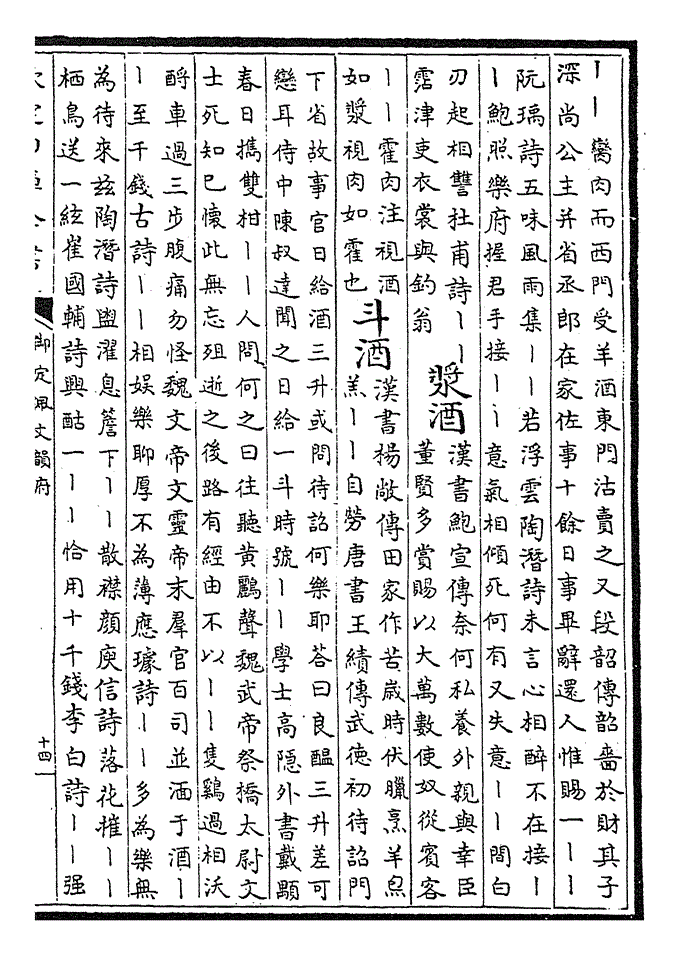 ｜｜鬻肉而西門受羊酒東門沽責之又段韶傳韶嗇於財其子
深尚公主并省丞郎在家佐事十餘日事畢辭還人惟賜一｜｜
阮瑀詩五味風雨集｜｜若浮雲陶潛詩未言心相醉不在接｜
｜鮑照樂府握君手接｜｜意氣相傾死何有又失意｜｜間白
刃起相讐杜甫詩｜｜
霑津吏衣裳與釣翁
漿酒
漢書鮑宣傳奈何私養外親與幸臣
董賢多賞賜以大萬數使奴從賓客
｜｜霍肉注視酒
如漿視肉如霍也
斗酒
漢書楊敞傳田家作苦歲時伏臘烹羊炰
羔｜｜自勞唐書王績傳武德初待詔門
下省故事官日給酒三升或問待詔何樂耶答曰良醞三升差可
戀耳侍中陳叔達聞之日給一斗時號｜｜學士高隱外書戴顒
春日攜雙柑｜｜人問何之曰往聽黃鸝聲魏武帝祭橋太尉文
士死知已懷此無忘殂逝之後路有經由不以｜｜隻鷄過相沃
酹車過三步腹痛勿怪魏文帝文靈帝末羣官百司並湎于酒｜
｜至千錢古詩｜｜相娛樂聊厚不為薄應璩詩｜｜多為樂無
為待來兹陶潛詩盥濯息簷下｜｜散襟顏庾信詩落花催｜｜
栖烏送一絃崔國輔詩興酤一｜｜恰用十千錢李白詩｜｜强
御定佩文韻府
十四